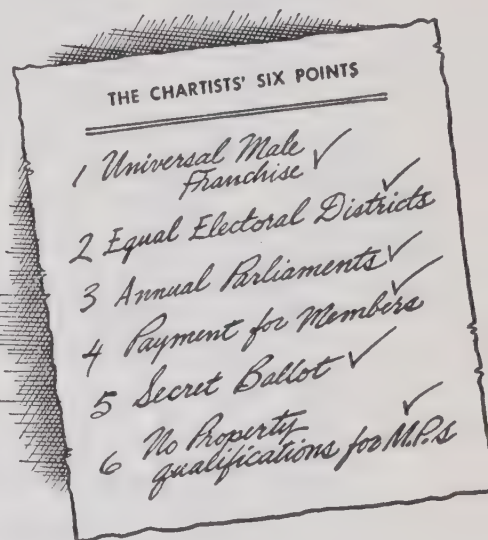 THE CHARTISTS' SIX POINTS
1 Universal Male
Franchise ✓
2 Equal Electoral Districts ✓
3 Annual Parliaments ✓
4 Payment for Members ✓
5 Secret Ballot ✓
6 No Property ✓
qualifications for M.P.s